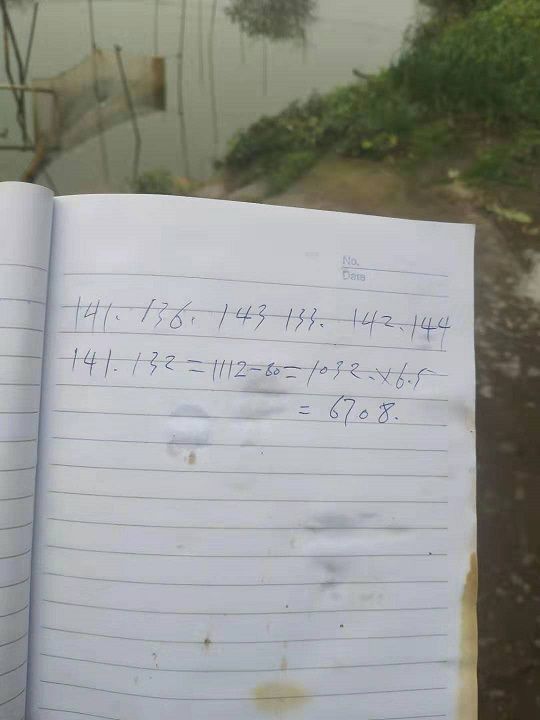 No.
Date
141. 136. 143 133. 142. 144
141. 132 = 1112-80 = 1032. × 6.5
= 6708.